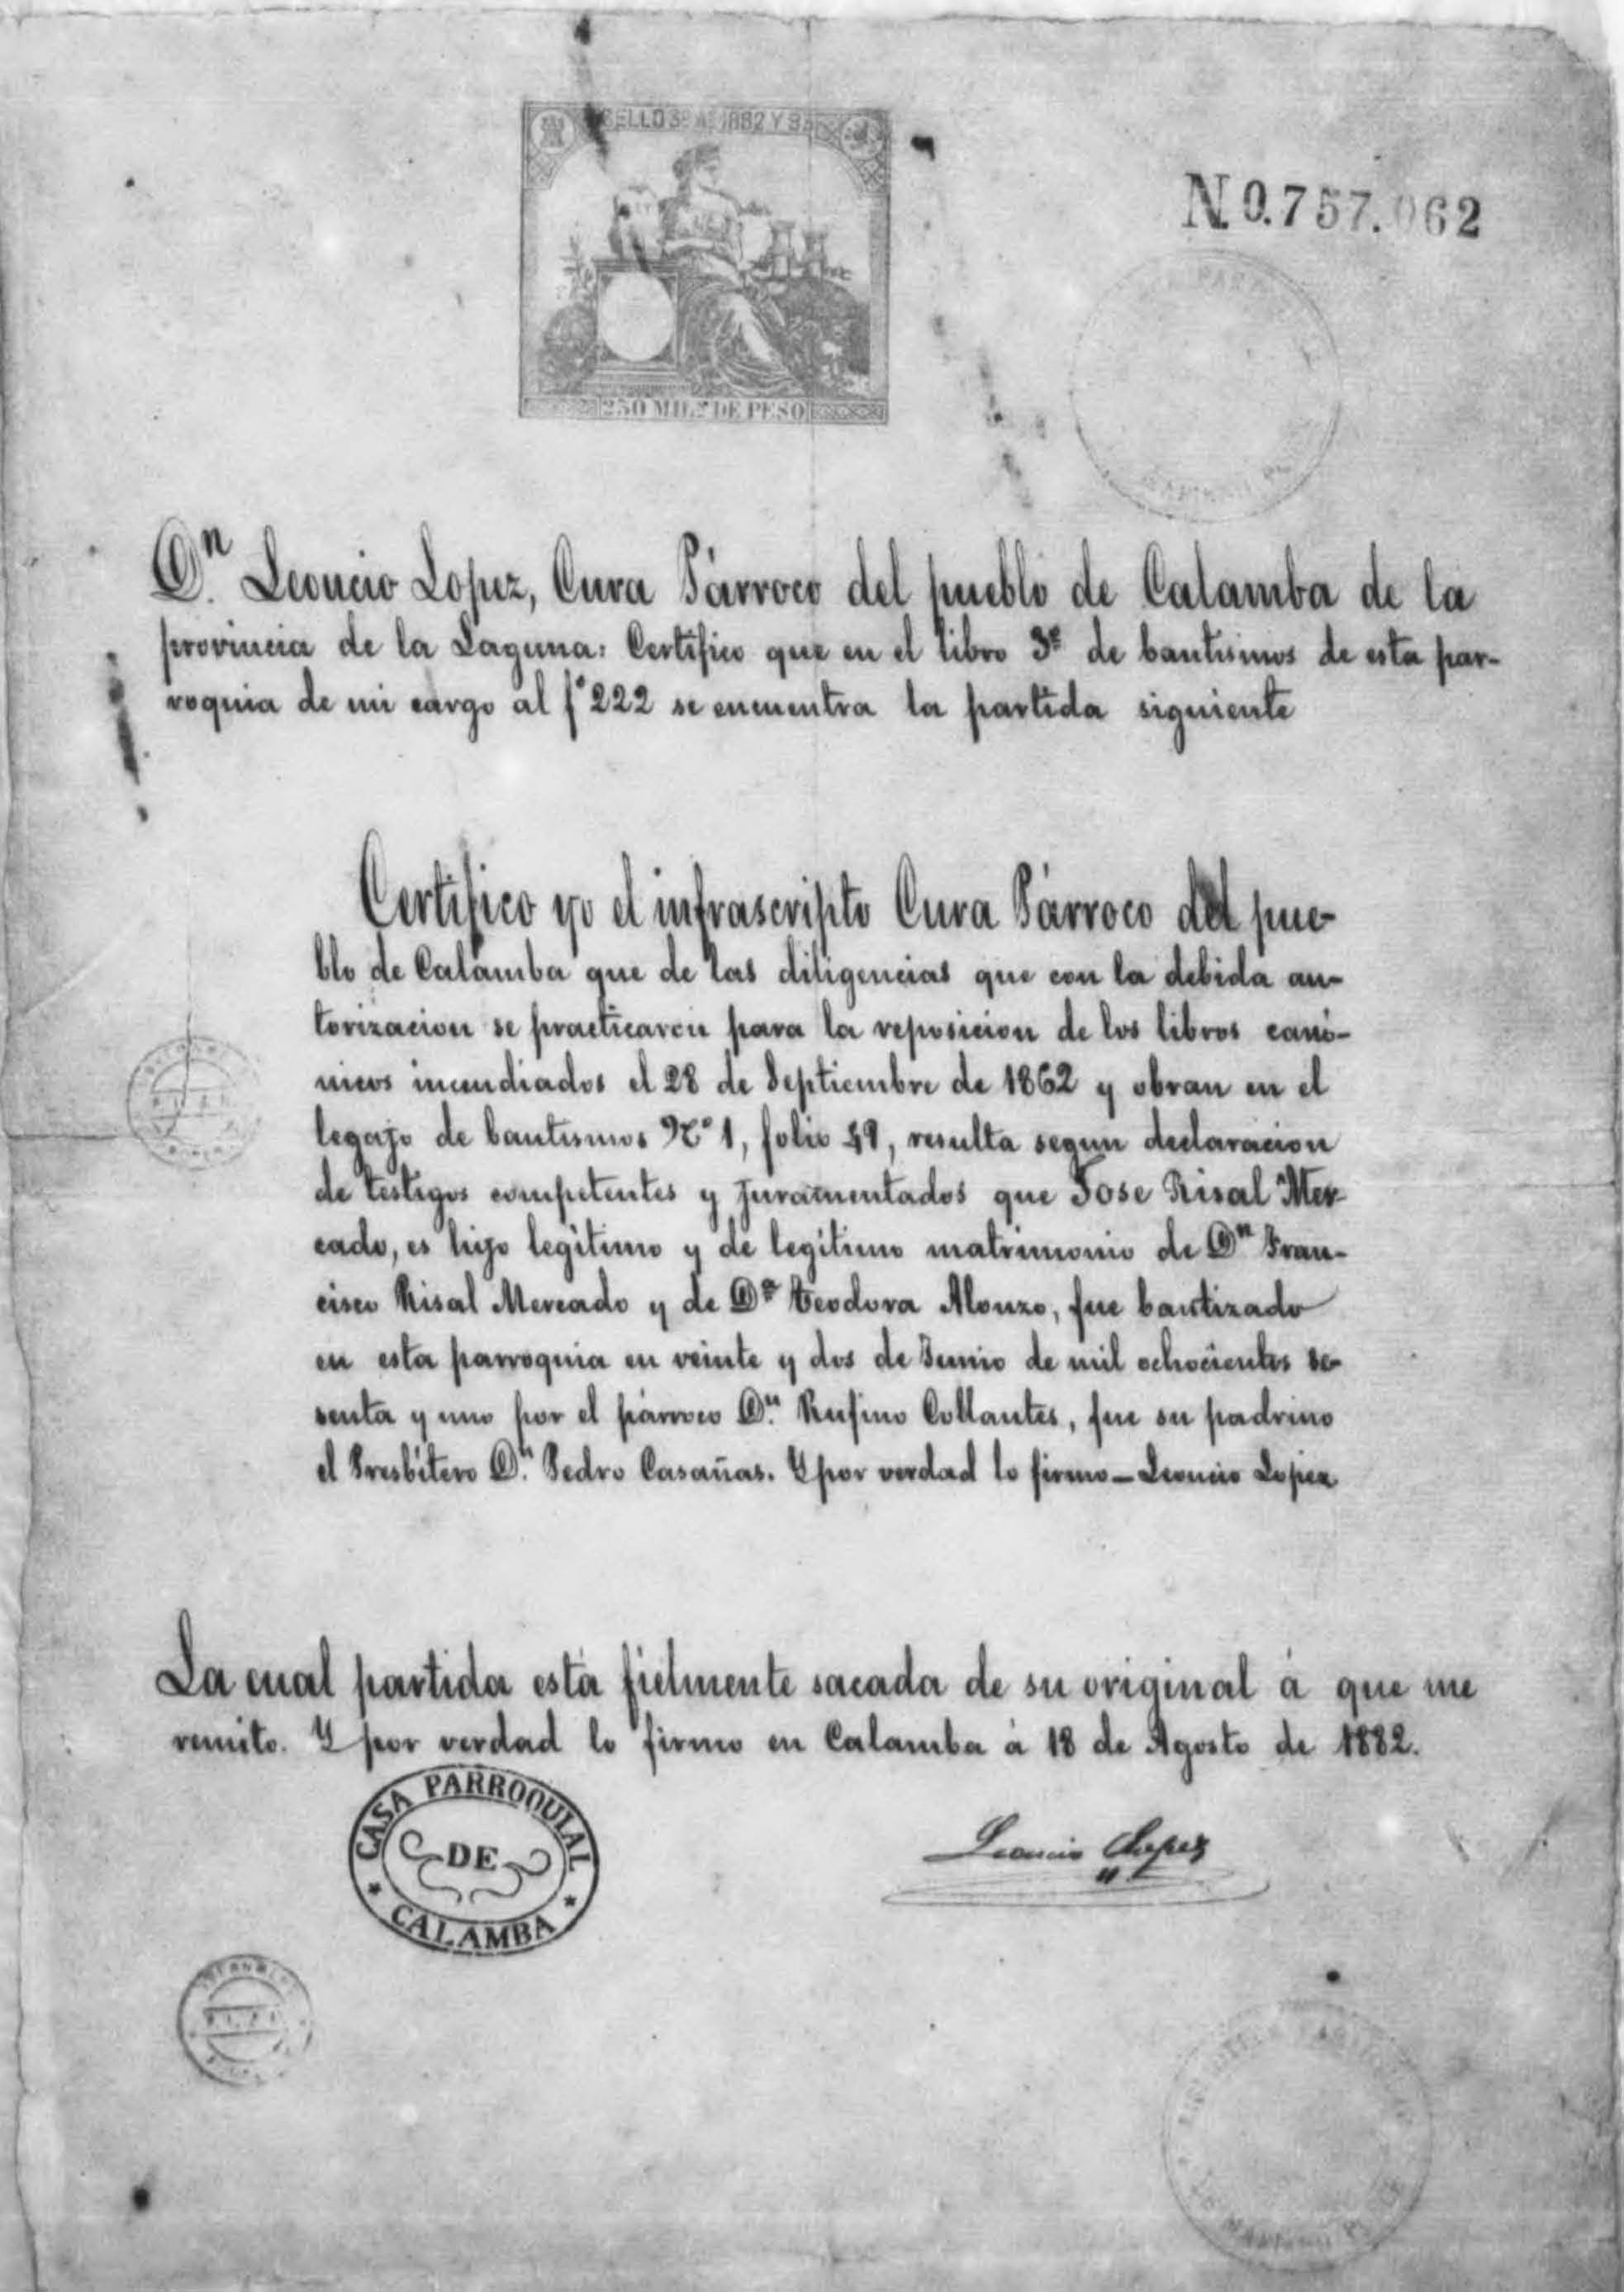 SELLO 3º Aº 1882 Y 83
250 MILS DE PESO
N.0.757.062
Dn. Leoncio Lopez, Cura Párroco del pueblo de Calamba de la
provincia de la Laguna: Certifico que en el libro 3º de bautismos de esta par-
roquia de mi cargo al fº 222 se encuentra la partida siguiente
Certifico yo el infrascripto Cura Párroco del pue-
blo de Calamba que de las diligencias que con la debida au-
torizacion se practicaron para la reposicion de los libros canó-
nicos incendiados el 28 de Septiembre de 1862 y obran en el
legajo de bautismos Nº 1, folio 49, resulta segun declaracion
de testigos competentes y juramentados que Jose Risal Mer-
cado, es hijo legítimo y de legítimo matrimonio de Dn Fran-
cisco Risal Mercado y de Dª Teodora Alonzo, fue bautizado
en esta parroquia en veinte y dos de Junio de mil ochocientos se-
senta y uno por el párroco Dn. Rufino Collantes, fue su padrino
el Presbítero Dn. Pedro Casañas. Y por verdad lo firmo - Leoncio Lopez
La cual partida está fielmente sacada de su original á que me
remito. Y por verdad lo firmo en Calamba á 18 de Agosto de 1882.
CASA PARROQUIAL
DE
CALAMBA
Leoncio Lopez